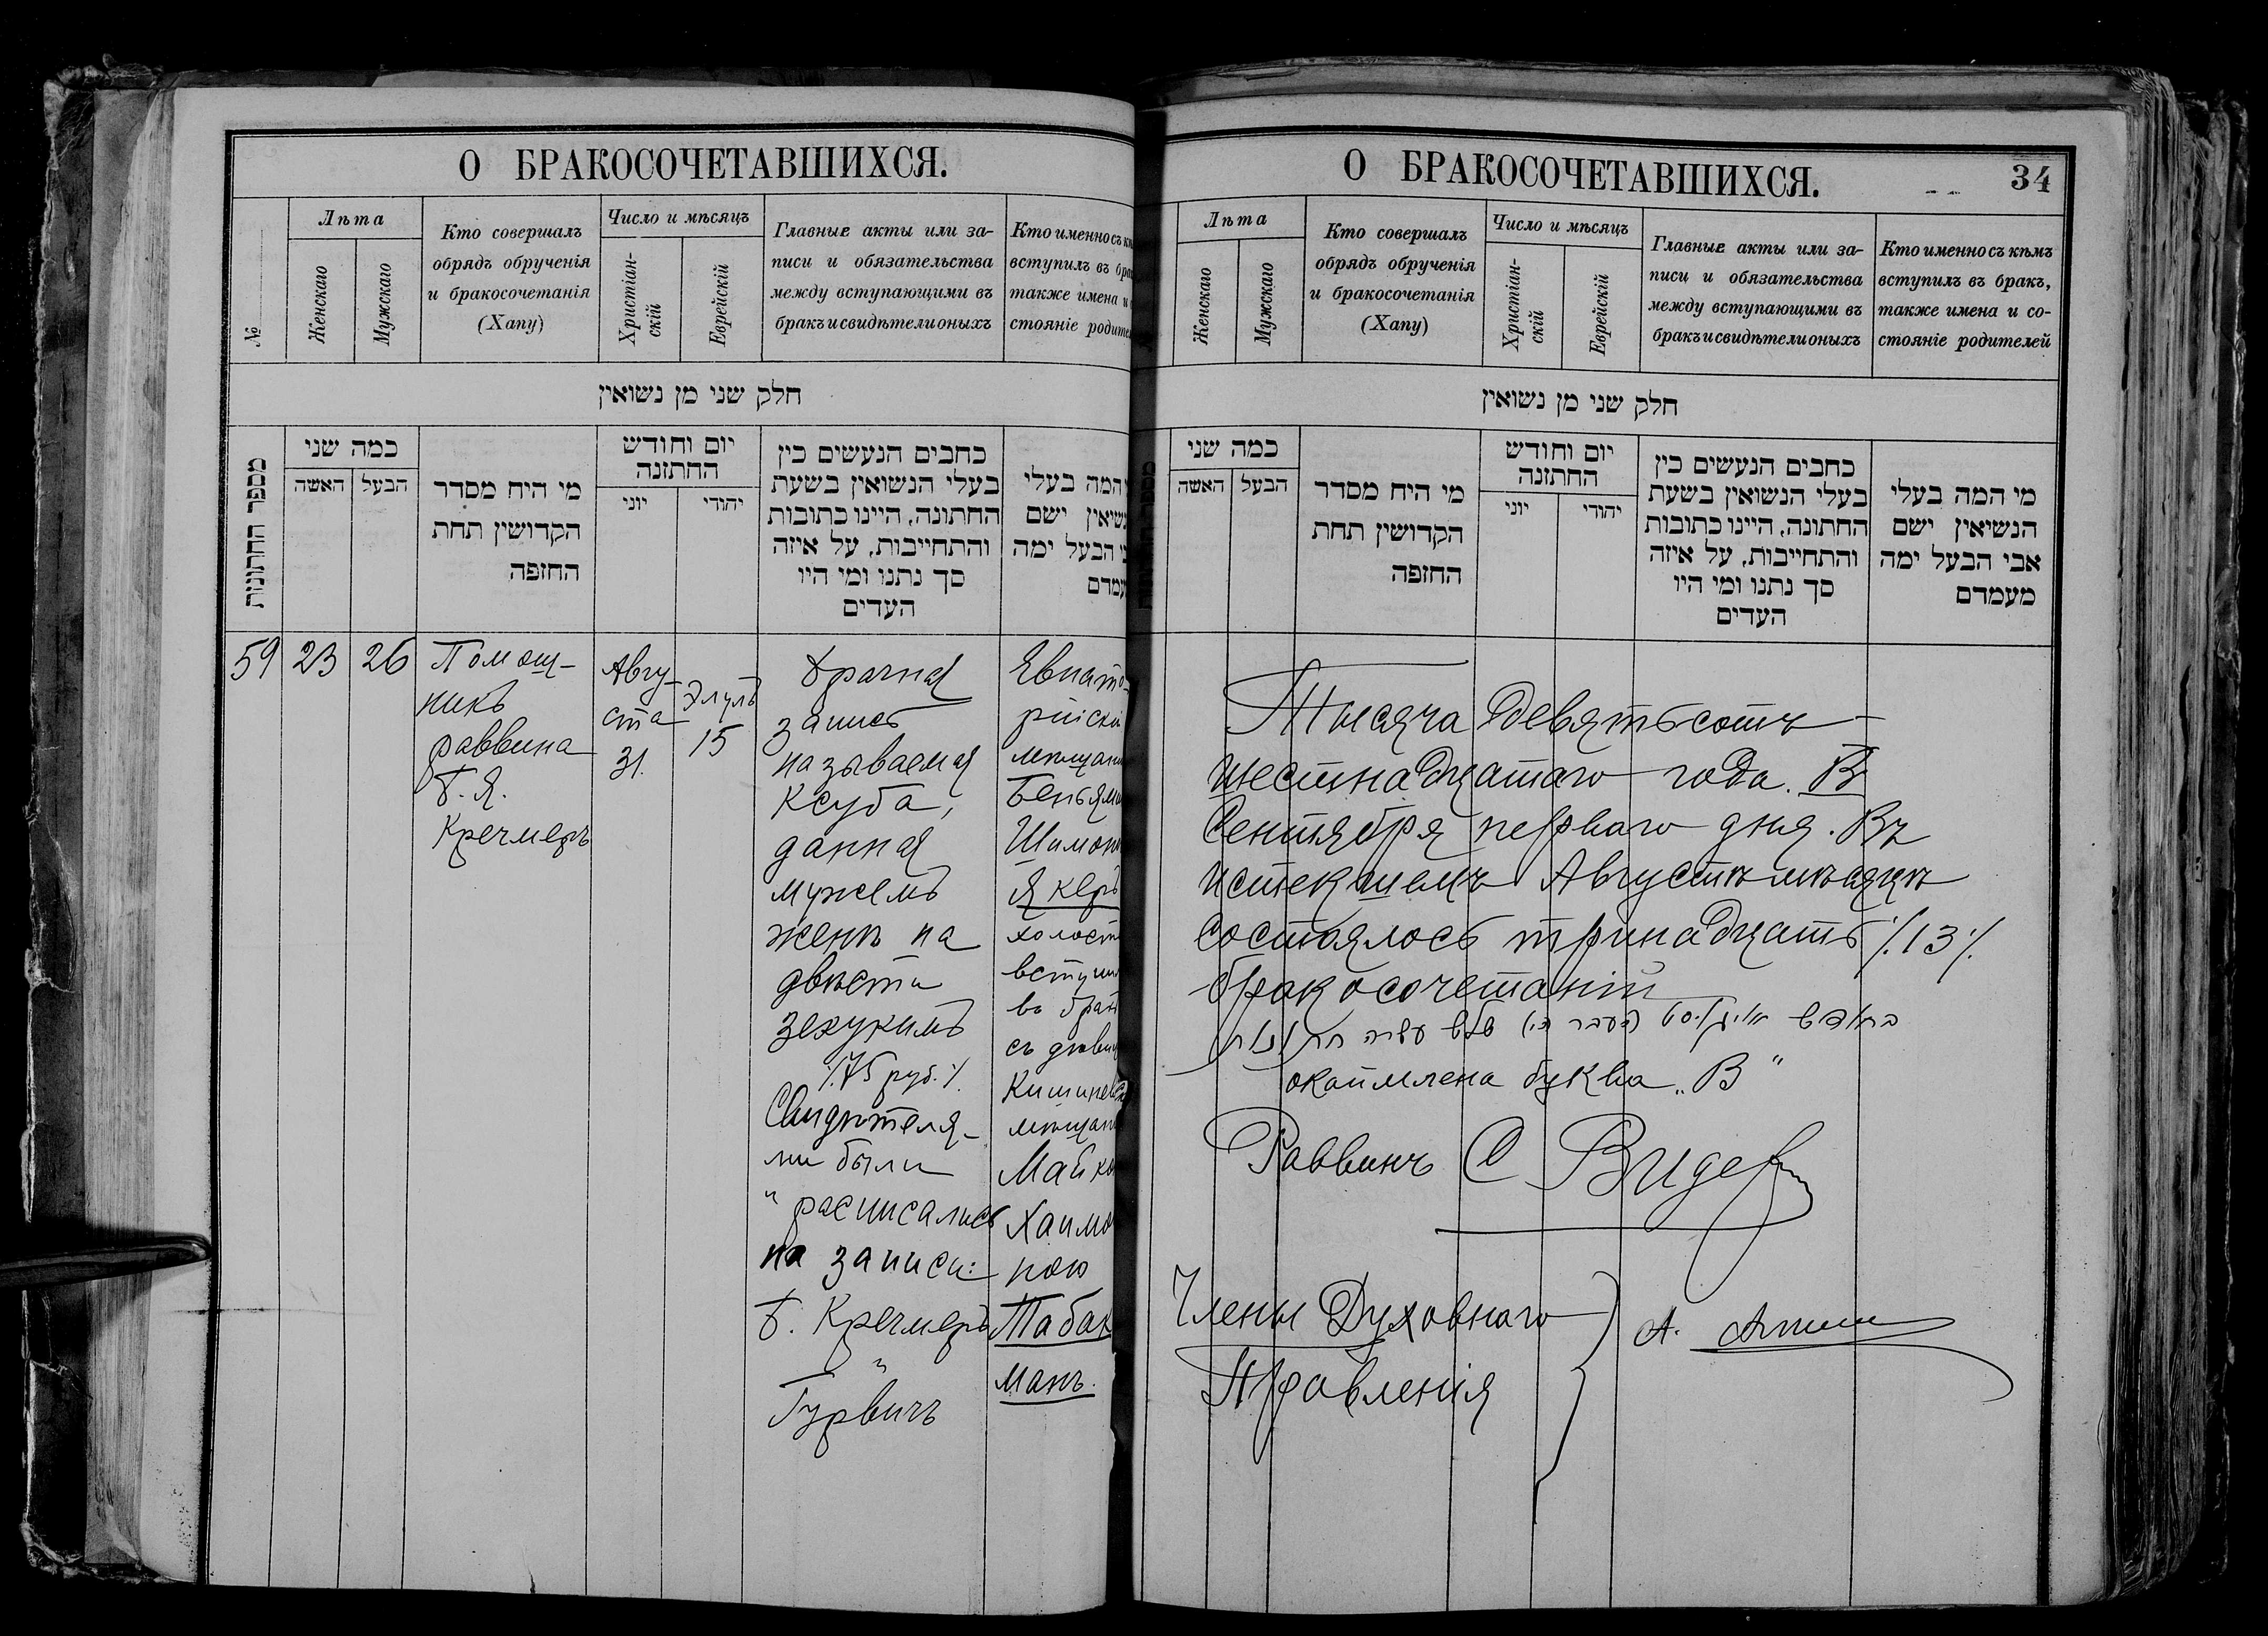 О БРАКОСОЧЕТАВШИХСЯ.
№
Лѣта
Женскаго
Мужскаго
Кто совершалъ
обрядъ обрученія
и бракосочетанія
(Хапу)
Число и мѣсяцъ
Христіан-
скій
Еврейскій
Главные акты или за-
писи и обязательства
между вступающими въ
бракъ и свидѣтели оныхъ
Кто именно съ
вступилъ въ
также имена и
стояніе
חלק שני מן נשואין
מספר החתונות
כמה שני
האשה
הבעל
מי היח מסדר
הקדושין תחת
החופה
יום וחודש
החתונה
יוני
יהודי
כתבים הנעשים בין
בעלי הנשואין בשעת
החתונה, היינו כתובות
והתחייבות, על איזה
סך נתנו ומי היו
העדים
המה בעלי
ישם
הבעל ימה
59
23
26
Помощ-
никъ
раввина
Б. Я.
Кречмеръ
Авгу-
ста
31.
Элулъ
15
Брачная
запись
называемая
Ксуба,
данная
мужемъ
женѣ на
двѣсти
зехукимъ
/.75 руб./.
Свидѣтеля-
ми были
и расписались
на записи:
Б. Кречмеръ
и
Гурвичъ
Евпато-
рійскій
мѣщан
Беньям
Шимон
Якеръ
холост
вступи
въ бракъ
съ дѣви
Кишинев
мѣщан
Майко
Хаимо
ною
Табак
манъ.
О БРАКОСОЧЕТАВШИХСЯ.
34
Лѣта
Женскаго
Мужскаго
Кто совершалъ
обрядъ обрученія
и бракосочетанія
(Хапу)
Число и мѣсяцъ
Христіан-
скій
Еврейскій
Главные акты или за-
писи и обязательства
между вступающими въ
бракъ и свидѣтели оныхъ
Кто именно съ кѣмъ
вступилъ въ бракъ,
также имена и со-
стояніе родителей
חלק שני מן נשואין
כמה שני
האשה
הבעל
מי היח מסדר
הקדושין תחת
החופה
יום וחודש
החתונה
יוני
יהודי
כתבים הנעשים בין
בעלי הנשואין בשעת
החתונה, היינו כתובות
והתחייבות, על איזה
סך נתנו ומי היו
העדים
מי המה בעלי
הנשיאין ישם
אבי הבעל ימה
מעמדם
Тысяча девятьсотъ
шестнадцатаго года. В
Сентября перваго дня. Въ
истекшемъ Августѣ мѣсяцѣ
состоялось тринадцать /.13/.
бракосочетаній
בחודש אויגוסט העבר היו שלש עשרה חתונות
окаймлена буква „В"
Раввинъ С Видер
Члены Духовнаго
Правленія
А.